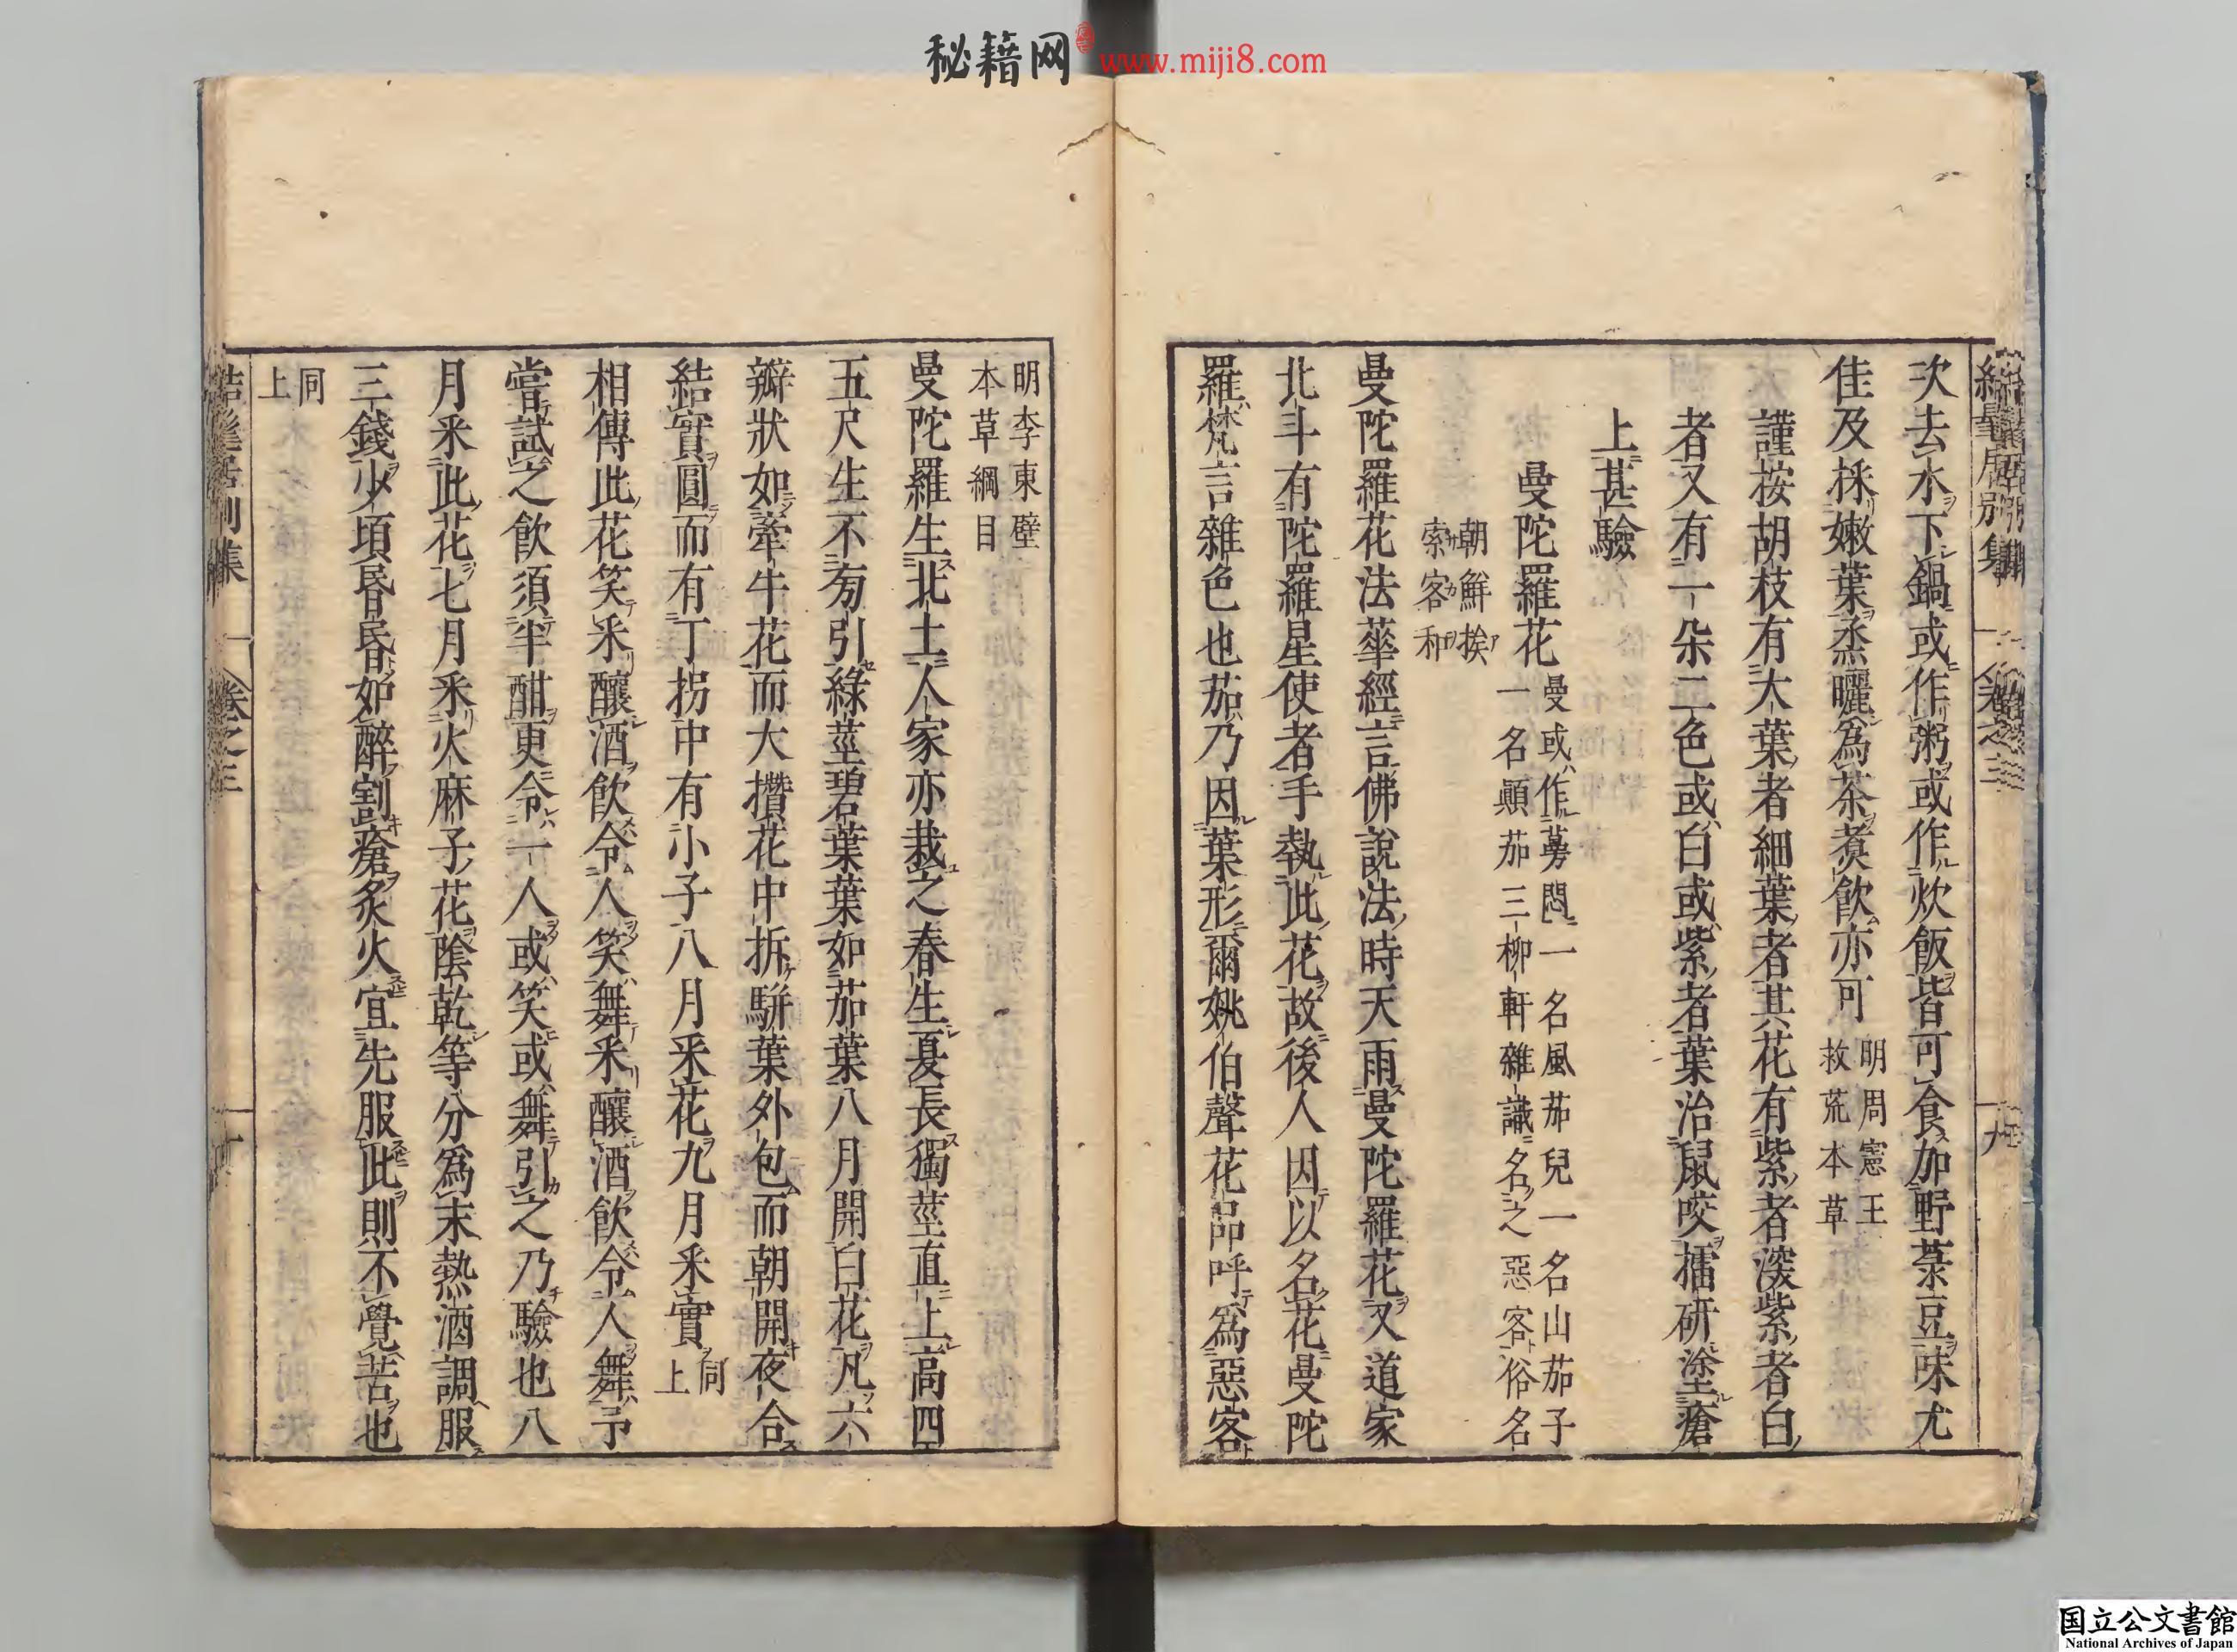 秘籍网 www.miji8.com
結髦居別集 卷之三 九
次去水下鍋或作粥或作炊飯皆可食加野菜豆味尤
佳及採嫩葉蒸曬為茶煑飲亦可 明周憲王
救荒本草
謹按胡枝有大葉者細葉者其花有紫者淡紫者白
者又有一朵二色或白或紫者葉治鼠咬擂研塗瘡
上甚驗
曼陀羅花 曼或作蔓悶一名風茄兒一名山茄子
一名顛茄三柳軒雜識名之惡客俗名
朝鮮挨
索客和
曼陀羅花法華經言佛說法時天雨曼陀羅花又道家
北斗有陀羅星使者手執此花故後人因以名花曼陀
羅梵言雜色也茄乃因葉形爾姚伯聲花品呼為惡客
明李東壁
本草綱目
曼陀羅生北土人家亦栽之春生夏長獨莖直上高四
五尺生不旁引綠莖碧葉葉如茄葉八月開白花凡六
瓣狀如牽牛花而大攢花中拆駢葉外包而朝開夜合
結實圓而有丁拐中有小子八月釆花九月釆實 同
上
相傳此花笑釆釀酒飲令人笑舞釆釀酒飲令人舞予
嘗試之飲須半酣更令一人或笑或舞引之乃驗也八
月釆此花七月釆火麻子花陰乾等分為末熱酒調服
三錢少頃昏昏如醉割瘡炙火宜先服此則不覺苦也
同
上
結髦居別集 卷之三 十
国立公文書館
National Archives of Japan